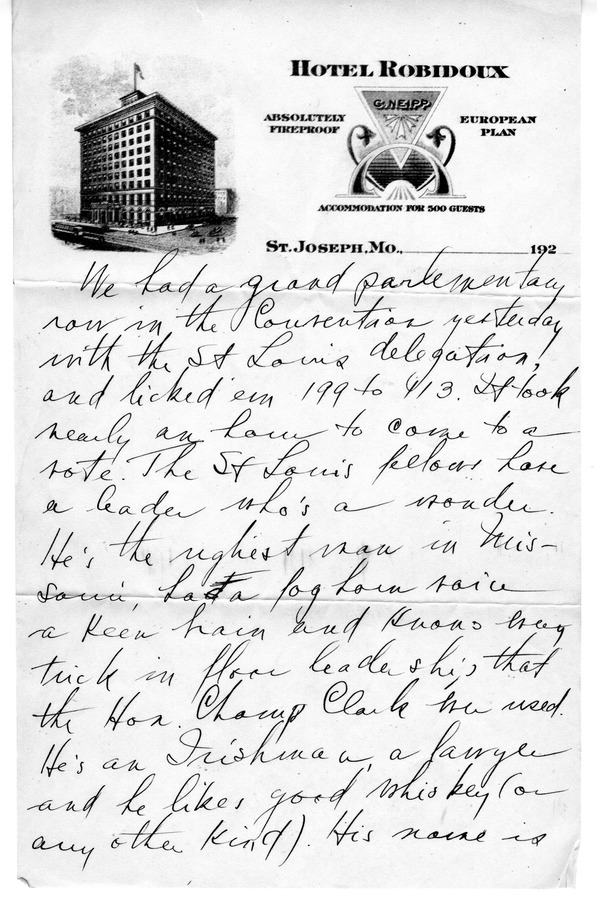 HOTEL ROBIDOUX
G. NEIPP
ABSOLUTELY
FIREPROOF
EUROPEAN
PLAN
ACCOMMODATION FOR 500 GUESTS
ST. JOSEPH, MO., 192
We had a grand parlementary
row in the Convention yesterday
with the St Louis delegation,
and licked em 199 to 113. It took
nearly an hour to come to a
vote. The St Louis fellows have
a leader who's a wonder.
He's the ugliest man in Mis-
souri, has a foghorn voice
a keen brain and knows every
trick in floor leadership that
the Hon. Champ Clark ever used.
He's an Irishman, a lawyer
and he likes good whiskey (or
any other kind). His name is